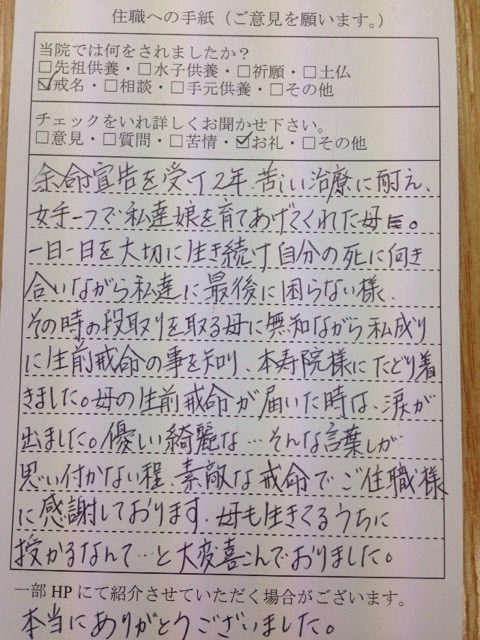 住職への手紙（ご意見を願います。）
当院では何をされましたか？
□先祖供養・□水子供養・□祈願・□土仏
☑戒名・□相談・□手元供養・□その他
チェックをいれ詳しくお聞かせ下さい。
□意見・□質問・□苦情・☑お礼・□その他
余命宣告を受け2年、苦しい治療に耐え、
女手一つで私達娘を育てあげてくれた母。
一日一日を大切に生き続け自分の死に向き
合いながら私達に最後に困らない様、
その時の段取りを取る母に無知ながら私成り
に生前戒命の事を知り、本寿院様にたどり着
きました。母の生前戒命が届いた時は、涙が
出ました。優しい綺麗な…そんな言葉しか
思い付かない程、素敵な戒命でご住職様
に感謝しております。母も生きてるうちに
授かるなんて…と大変喜こんでおりました。
一部HPにて紹介させていただく場合がございます。
本当にありがとうございました。